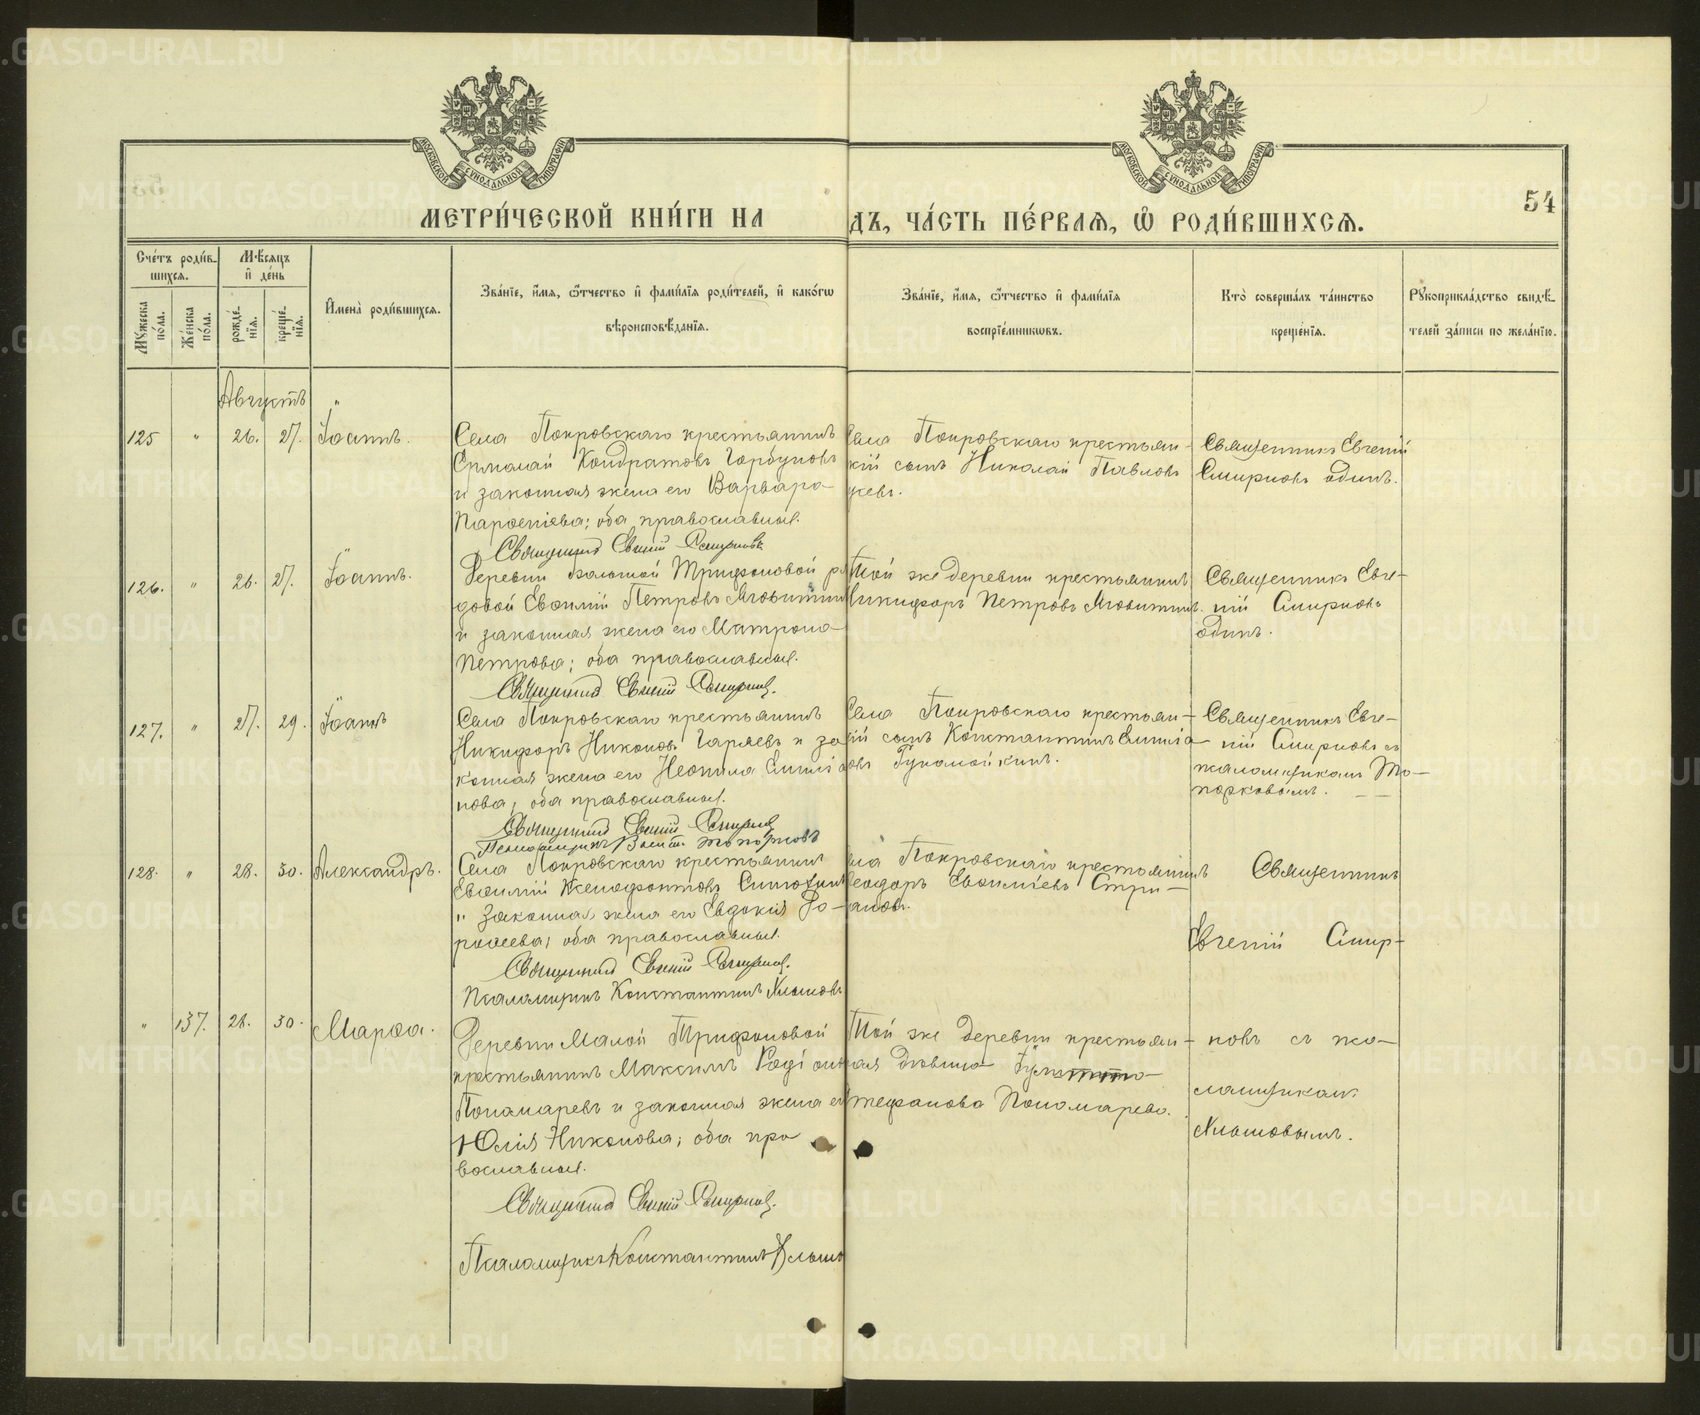 МЕТРИ́ЧЕСКОЙ КНИ́ГИ НА ДЪ, ЧА́СТЬ ПЕ́РВАЯ, Ѽ РОДИ́ВШИХСЯ.
54
Сче́тъ роди́в-
шихся.
Мѣ́сяцъ
и де́нь
Мꙋ́жеска по́ла.
Же́нска по́ла.
рожде́-
нїя.
креще́-
нїя.
Имена̀ роди́вшихся.
Зва́нїе, и́мя, ѻ́тчество и фами́лїя роди́телей, и како́гѡ
вѣроисповѣ́данїя.
Зва́нїе, и́мя, ѻ́тчество и фами́лїя
воспрїе́мникѡвъ.
Кто̀ соверша́лъ та́инство
креще́нїя.
Рꙋкоприкла́дство свидѣ́-
телей за́писи по жела́нїю.
Августъ "
125 " 26. 27. Іоаннъ.
Села Покровскаго крестьянинъ
Ермолай Кондратовъ Горбуновъ
и законная жена его Варвара
Парѳеніева; оба православные.
Священникъ Евгеній Смирновъ
Села Покровскаго крестьян-
кій сынъ Николай Павловъ
Священникъ Евгеній
Смирновъ одинъ.
126. " 26. 27. Іоаннъ.
Деревни Большой Трифоновой ря
довой Евѳимій Петровъ
и законная жена его Матрона
Петрова; оба православные.
Священникъ Евгеній Смирновъ.
Той же деревни крестьянинъ
Никифоръ Петровъ
Священникъ Евге-
ній Смирновъ
одинъ.
127. " 27. 29. Іоаннъ
Села Покровскаго крестьянинъ
Никифоръ Никоновъ Гаряевъ и за
конная жена его Неонила Емиліа
нова, оба православные.
Священникъ Евгеній Смирновъ
Псаломщикъ Топорковъ
Села Покровскаго крестьян-
кій сынъ Константинъ Емиліа
овъ
Священникъ Евге-
ній Смирновъ съ
псаломщикомъ То-
порковымъ.
128. " 28. 30. Александръ.
Села Покровскаго крестьянинъ
Евѳимій Ксенофонтовъ
" законная жена его Евдокія До-
роѳеева; оба православные.
Священникъ Евгеній Смирновъ.
Псаломщикъ Константинъ
ела Покровскаго крестьянинъ
Ѳеодоръ Евѳиміевъ Стри-
Священникъ
Евгеній Смир-
" 137. 28. 30. Марѳа.
Деревни Малой Трифоновой
крестьянинъ Максимъ Родіон
Пономаревъ и законная жена ег
Юлія Никонова; оба пра
вославные.
Священникъ Евгеній Смирновъ.
Псаломщикъ Константинъ
Той же деревни крестьян-
ская дѣвица
Стефанова Пономарева.
новъ съ пса-
ломщикомъ